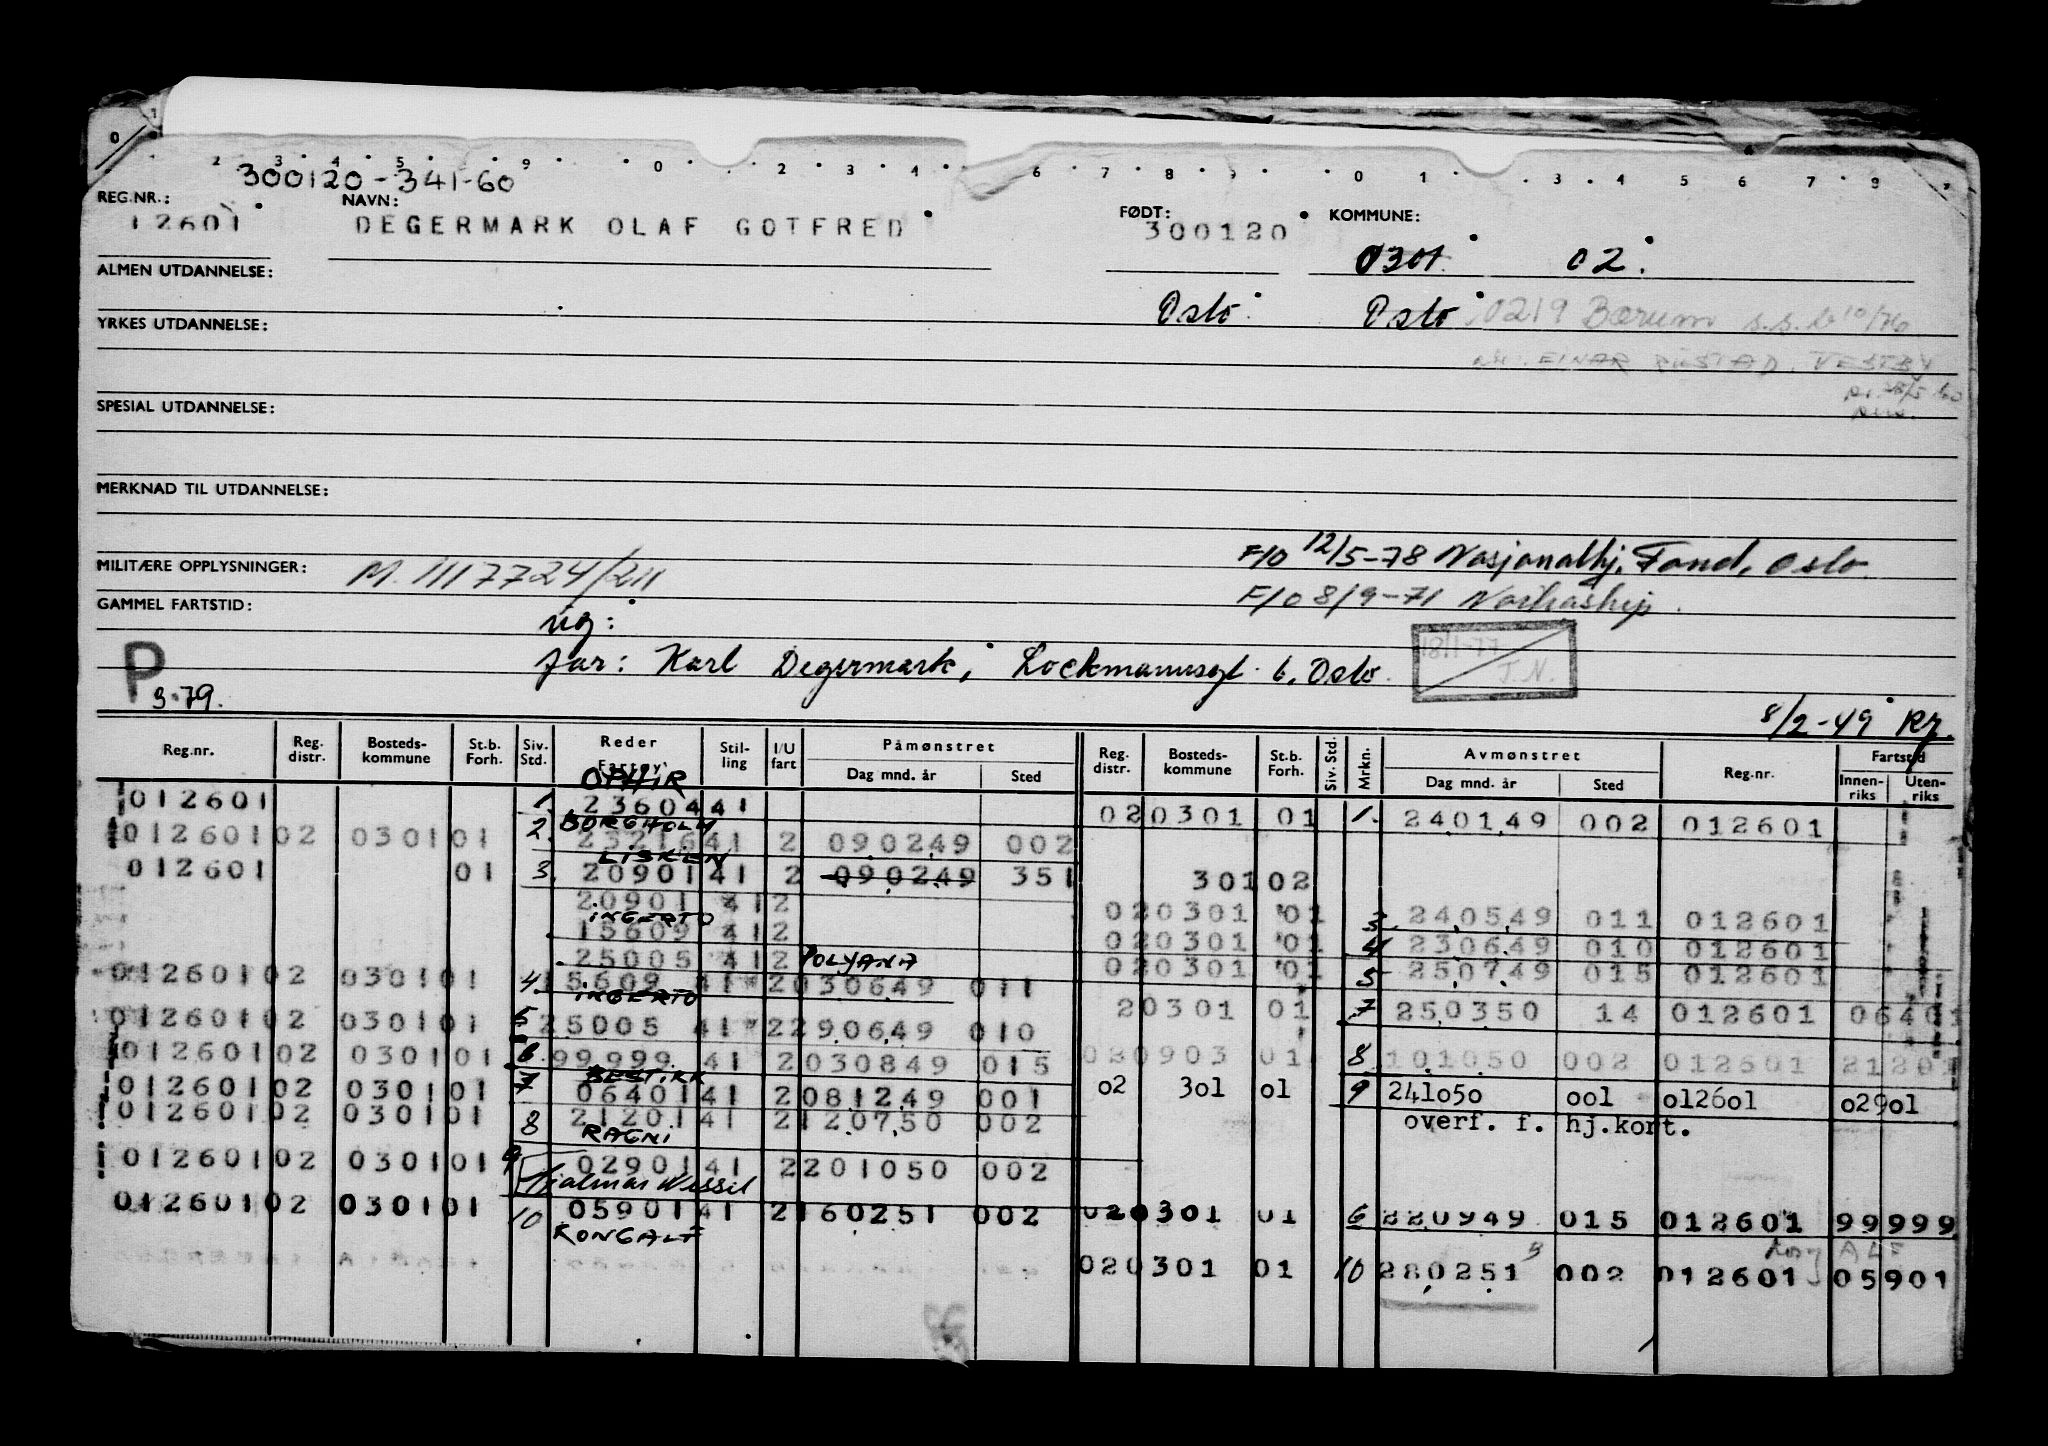 300120-341-60
REG.NR.: NAVN: FØDT: KOMMUNE:
12601 DEGERMARK OLAF GOTFRED 300120
0301. 02.
ALMEN UTDANNELSE:
Oslo Oslo 0219 Bærum
YRKES UTDANNELSE:
EINAR VESTBY
SPESIAL UTDANNELSE:
MERKNAD TIL UTDANNELSE:
F/O 12/5-78 Nasjonalhj. Fond, Oslo
MILITÆRE OPPLYSNINGER: M. 1117724/211
F/O 8/9-71 Nortraship.
GAMMEL FARTSTID:
ug:
far: Karl Degermark, Lockmannsgt. 6, Oslo.
18/1-77
J.N.
P
3-79.
8/2-49 Kz.
Reg.nr. Reg. distr. Bosteds-kommune St.b. Forh. Siv. Std. Reder Fartøy Stil-ling I/U fart Påmønstret Dag mnd. år Sted Reg. distr. Bosteds-kommune St.b. Forh. Siv. Std. Mrkn. Avmønstret Dag mnd. år Sted Reg.nr. Fartstid Innen-riks Uten-riks
OPHIR
012601 1. 23604 41 020301 01 1. 240149 002 012601
BORGHOLM
012601 02 0301 01 2. 23216 41 2 090249 002
LISKEN
012601 01 3. 20901 41 2 090249 351 301 02
20901 41 2 020301 01 3 240549 011 012601
INGERTO
15609 41 2 020301 01 4 230649 010 012601
25005 41 2 POLYANA 020301 01 5 250749 015 012601
012601 02 0301 01 4. 15609 41 2 030649 011
INGERTO
20301 01 7 250350 14 012601 06401
012601 02 0301 01 5 25005 41 2 290649 010
012601 02 0301 01 6. 99999 41 2 030849 015 020903 01 8 101050 002 012601 21201
BESTIKK
012601 02 0301 01 7 06401 41 2 081249 001 o2 3o1 o1 9 241o5o oo1 o126o1 o29o1
012601 02 0301 01 8 21201 41 2 120750 002 overf. f. hj.kort.
RAGNI
012601 02 0301 01 9 02901 41 2 201050 002
Hjalmar Wessel
012601 02 0301 01 10 05901 41 2 160251 002 020301 01 6 220949 015 012601 99999
KONGALF
Kong ALF
020301 01 10 280251 002 012601 05901